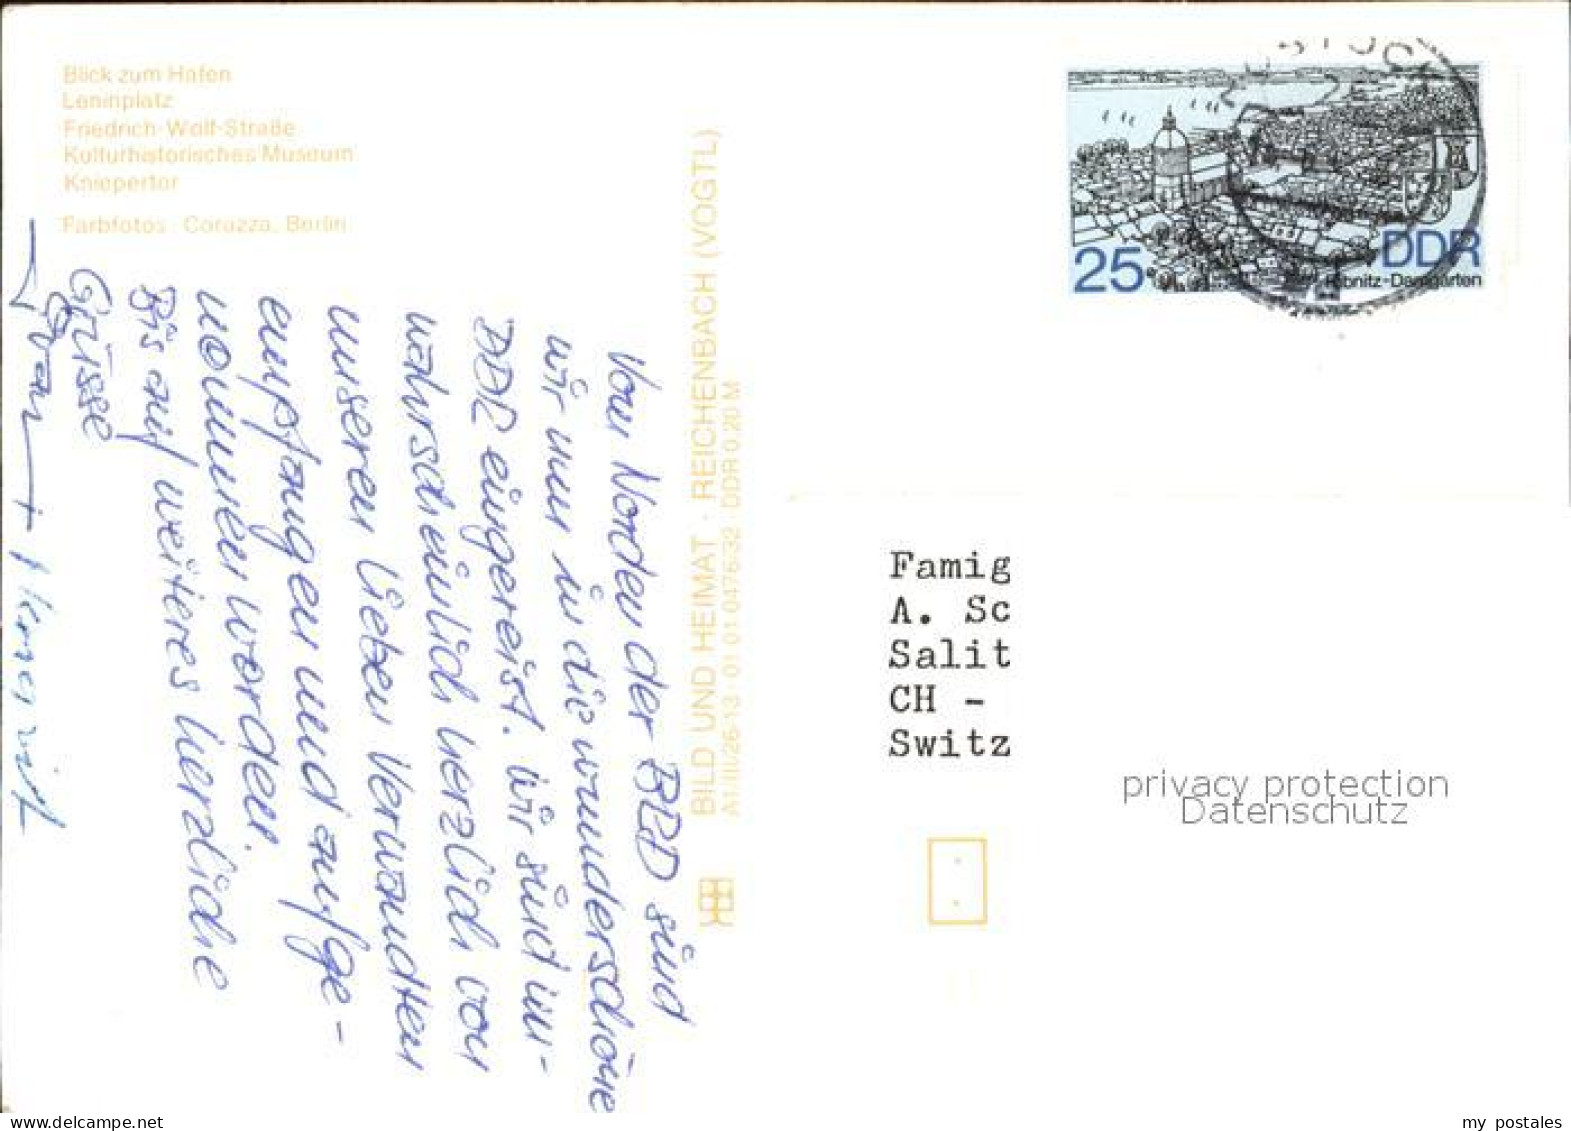 Blick zum Hafen
Leninplatz
Friedrich-Wolf-Straße
Kulturhistorisches Museum
Kniepertor
Farbfotos: Corazza, Berlin
Vom Norden der BRD sind
wir nun in die wunderschöne
DDR eingereist. Wir sind un-
wahrscheinlich herzlich von
unseren lieben Verwandten
empfangen und aufge-
nommen worden.
Bis auf weiteres herzliche
Grüsse
BILD UND HEIMAT · REICHENBACH (VOGTL)
A1/III/26-13 01 01 0476/32 DDR 0,20 M
25
DDR
Ribnitz-Damgarten
Famig
A. Sc
Salit
CH -
Switz
privacy protection
Datenschutz
www.delcampe.net
my_postales